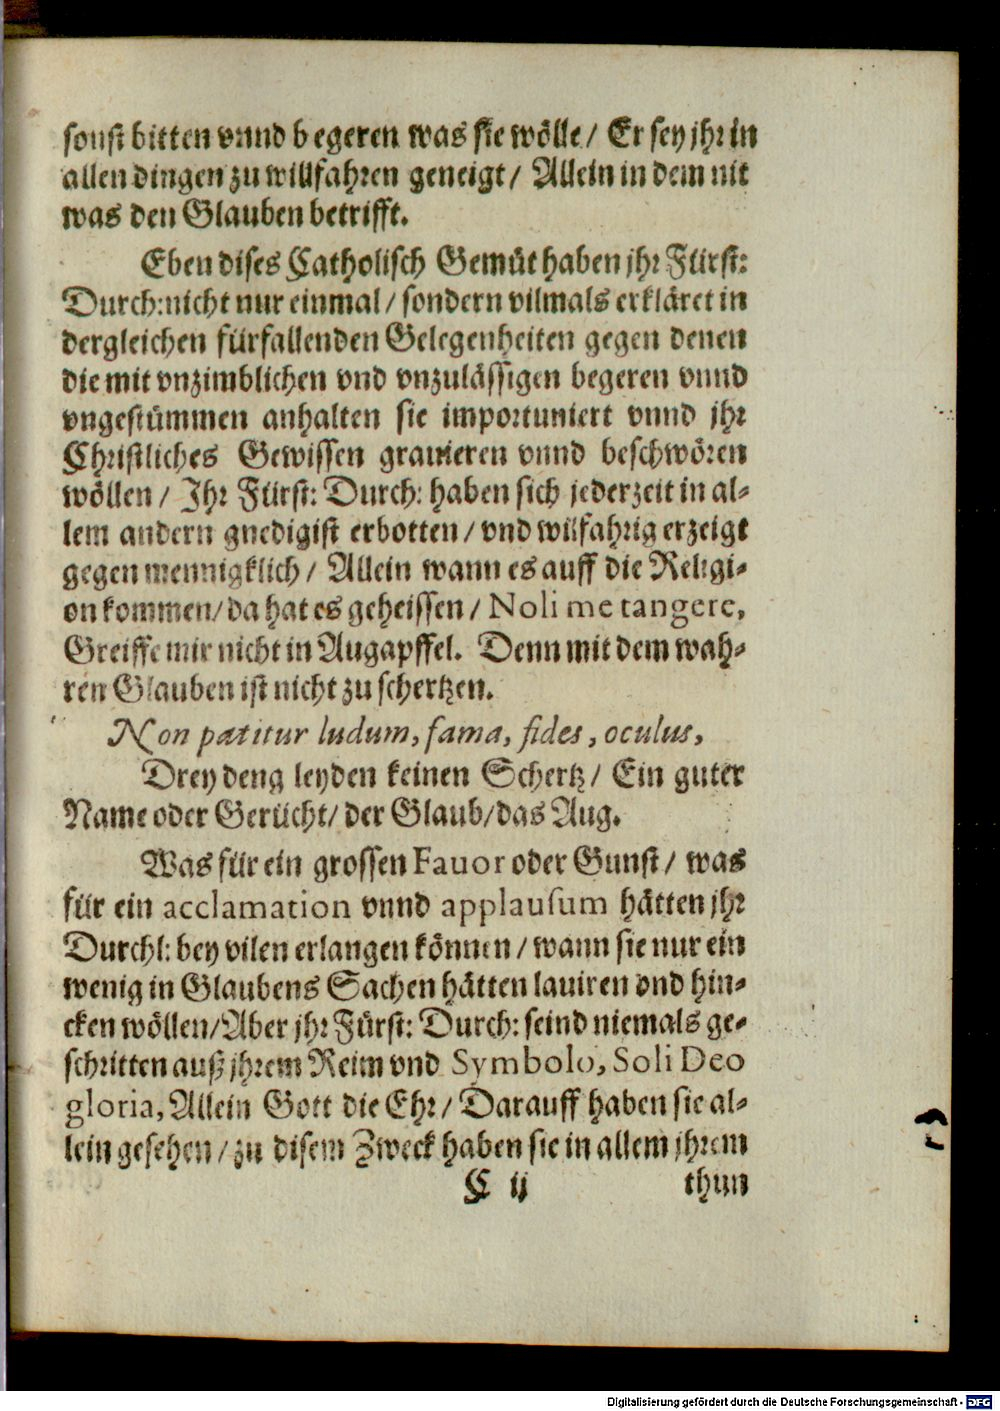 sonst bitten vnnd begeren was sie wölle / Er sey jhr in
allen dingen zu willfahren geneigt / Allein in dem nit
was den Glauben betrifft.
Eben dises Catholisch Gemüt haben jhr Fürst:
Durch: nicht nur einmal / sondern vilmals erkläret in
dergleichen fürfallenden Gelegenheiten gegen denen
die mit vnzimblichen vnd vnzulässigen begeren vnnd
vngestümmen anhalten sie importuniert vnnd jhr
Christliches Gewissen grauieren vnnd beschwören
wöllen / Ihr Fürst: Durch: haben sich jederzeit in al-
lem andern gnedigist erbotten / vnd wilfahrig erzeigt
gegen mennigklich / Allein wann es auff die Religi-
on kommen / da hat es geheissen / Noli me tangere,
Greiffe mir nicht in Augapffel. Denn mit dem wah-
ren Glauben ist nicht zu schertzen.
Non patitur ludum, fama, fides, oculus,
Drey deng leyden keinen Schertz / Ein guter
Name oder Gerücht / der Glaub / das Aug.
Was für ein grossen Fauor oder Gunst / was
für ein acclamation vnnd applausum hätten jhr
Durchl: bey vilen erlangen können / wann sie nur ein
wenig in Glaubens Sachen hätten lauiren vnd hin-
cken wöllen / Aber jhr Fürst: Durch: seind niemals ge-
schritten auß jhrem Reim vnd Symbolo, Soli Deo
gloria, Allein Gott die Ehr / Darauff haben sie al-
lein gesehen / zu disem Zweck haben sie in allem jhrem
C ij thun
Digitalisierung gefördert durch die Deutsche Forschungsgemeinschaft - DFG